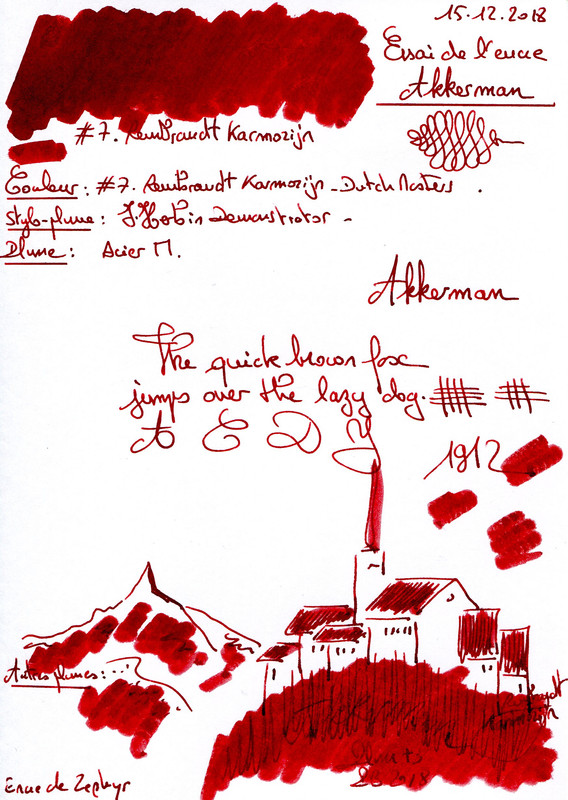 15.12.2018
Essai de l'encre
Akkerman
#7. Rembrandt Karmozijn
Couleur : #7. Rembrandt Karmozijn - Dutch Masters .
Stylo-plume : J.Herbin Demonstrator -
Plume : Acier M.
Akkerman
The quick brown fox
jumps over the lazy dog.
A E D Y
1912
Autres plumes : ...
2018
Encre de Zephyr